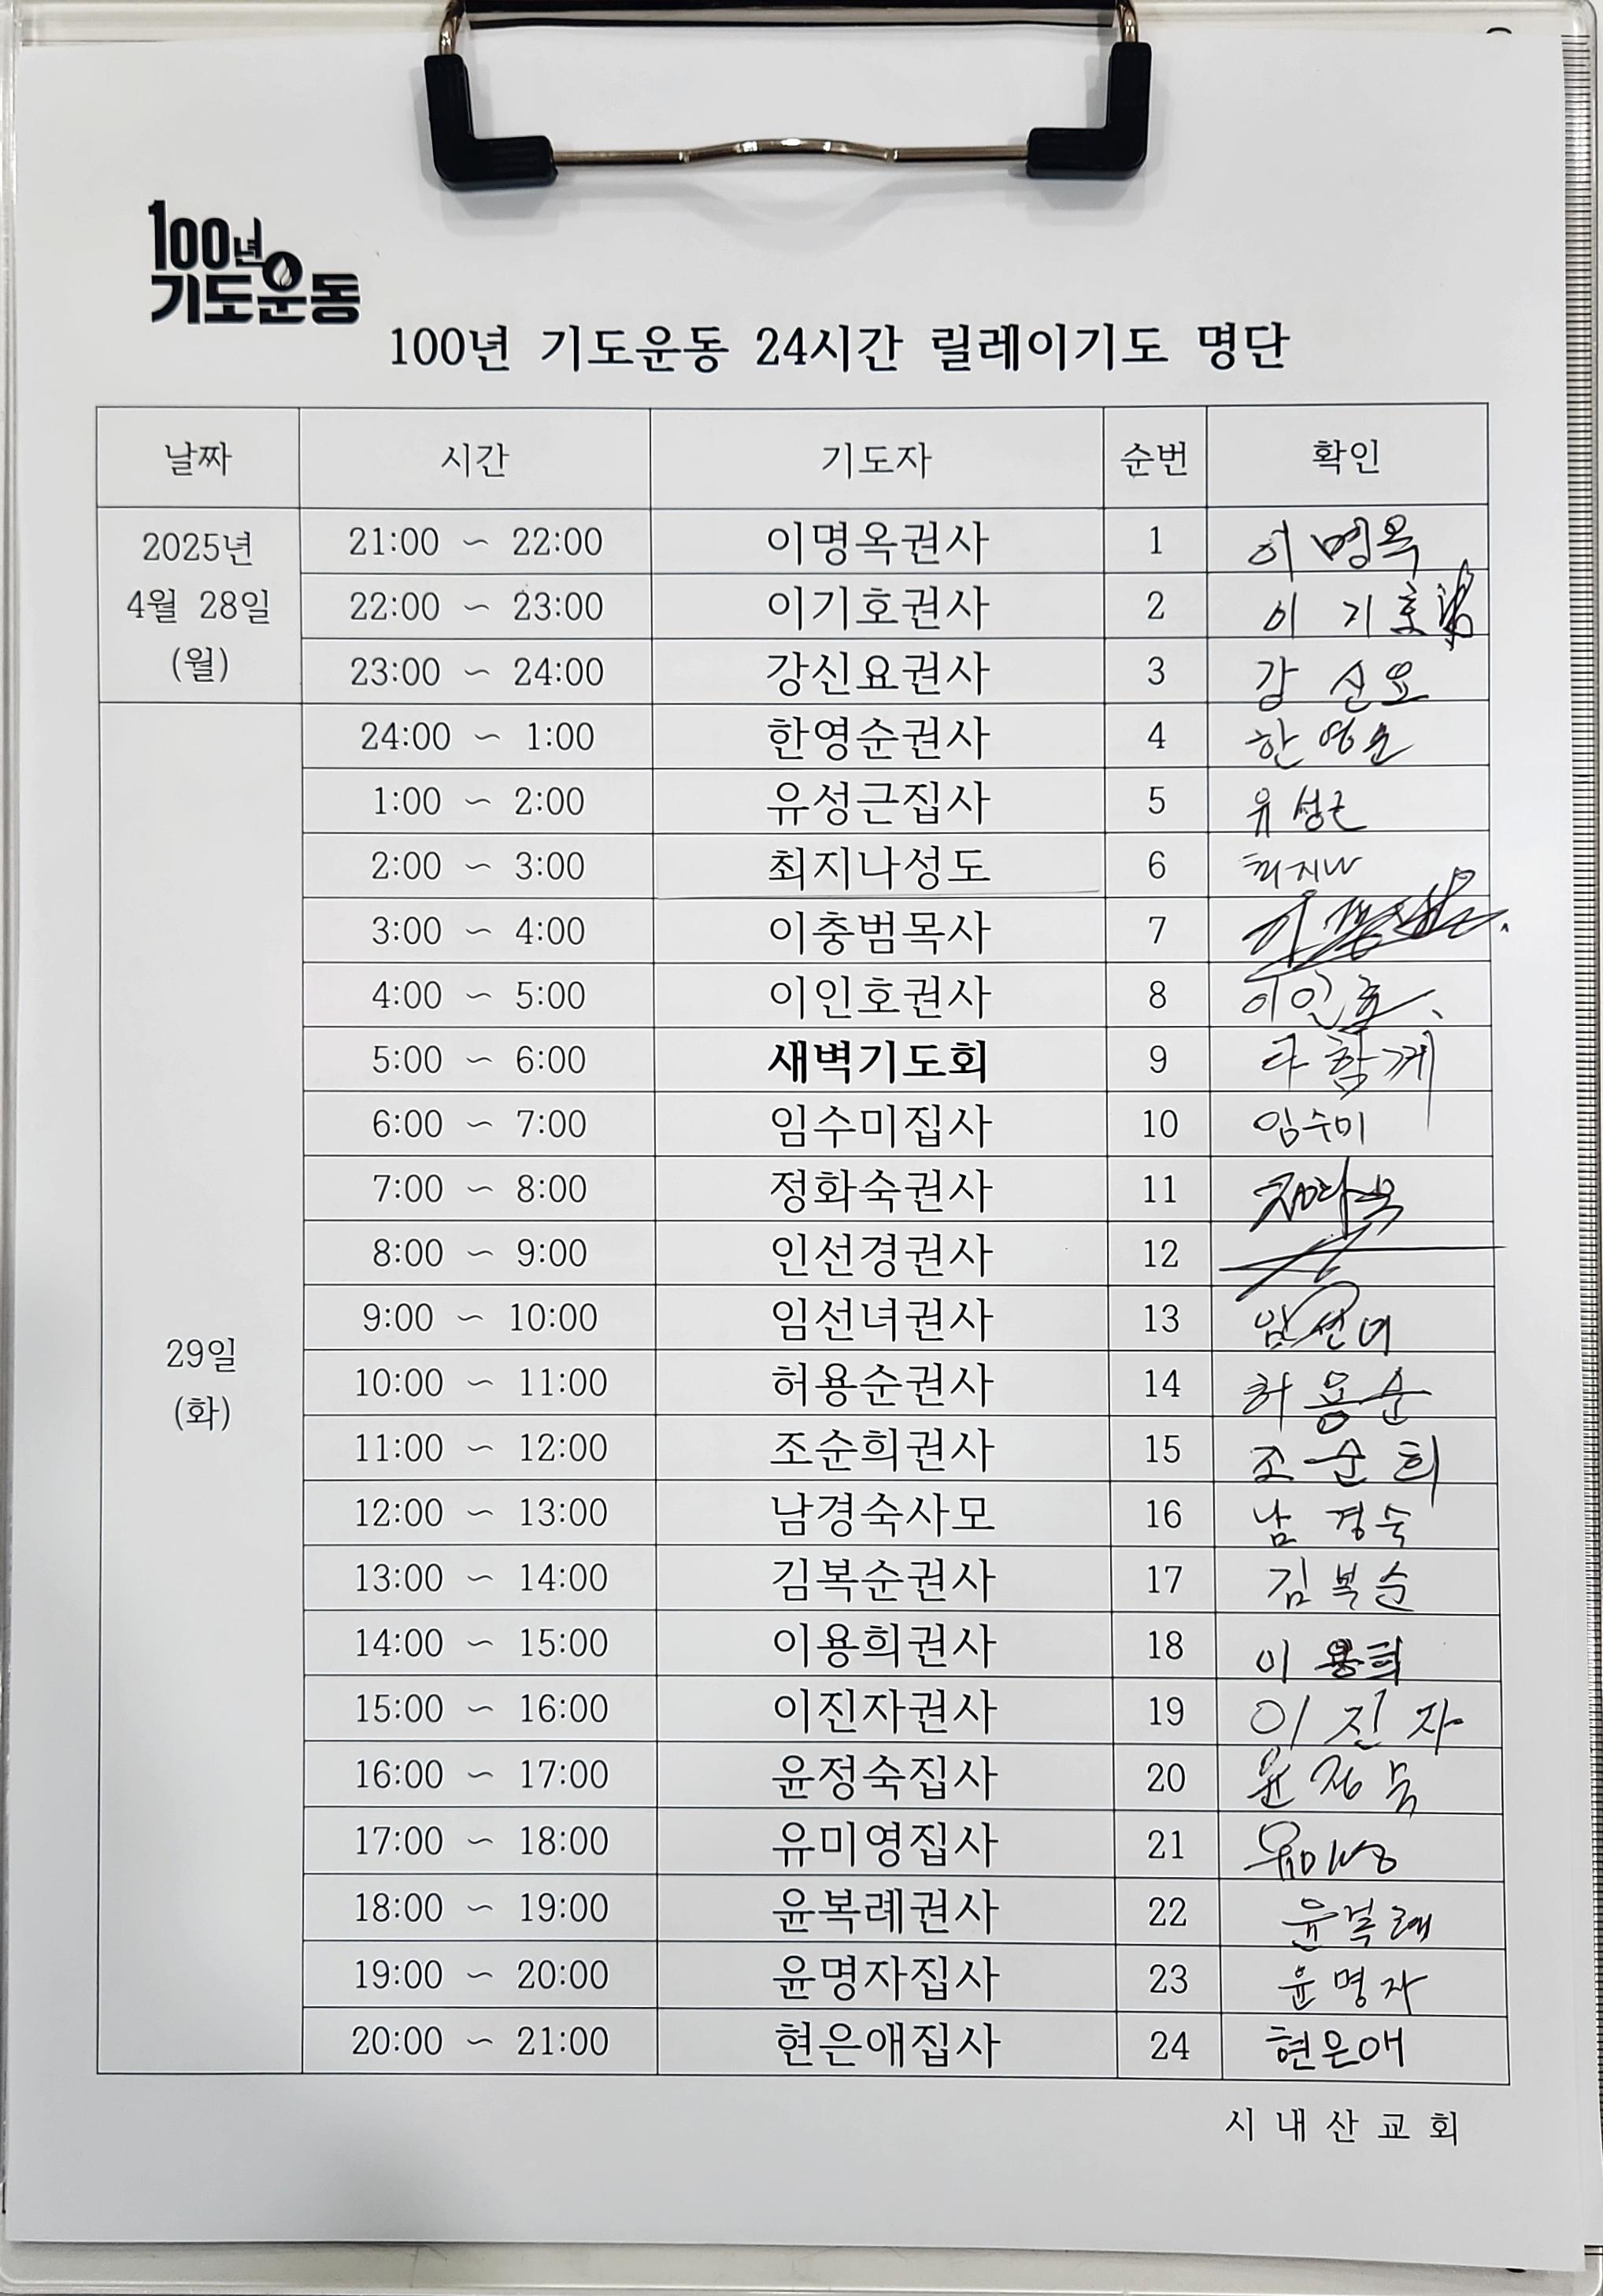 100년
기도운동
100년 기도운동 24시간 릴레이기도 명단
날짜 시간 기도자 순번 확인
2025년
4월 28일
(월)
21:00 ~ 22:00 이명옥권사 1 이명옥
22:00 ~ 23:00 이기호권사 2 이기호
23:00 ~ 24:00 강신요권사 3 강신요
29일
(화)
24:00 ~ 1:00 한영순권사 4 한영순
1:00 ~ 2:00 유성근집사 5 유성근
2:00 ~ 3:00 최지나성도 6 최지나
3:00 ~ 4:00 이충범목사 7
4:00 ~ 5:00 이인호권사 8 이인호
5:00 ~ 6:00 새벽기도회 9 다함께
6:00 ~ 7:00 임수미집사 10 임수미
7:00 ~ 8:00 정화숙권사 11
8:00 ~ 9:00 인선경권사 12
9:00 ~ 10:00 임선녀권사 13 임선녀
10:00 ~ 11:00 허용순권사 14 허용순
11:00 ~ 12:00 조순희권사 15 조순희
12:00 ~ 13:00 남경숙사모 16 남경숙
13:00 ~ 14:00 김복순권사 17 김복순
14:00 ~ 15:00 이용희권사 18 이용희
15:00 ~ 16:00 이진자권사 19 이진자
16:00 ~ 17:00 윤정숙집사 20 윤정숙
17:00 ~ 18:00 유미영집사 21 유미영
18:00 ~ 19:00 윤복례권사 22 윤복례
19:00 ~ 20:00 윤명자집사 23 윤명자
20:00 ~ 21:00 현은애집사 24 현은애
시내산교회